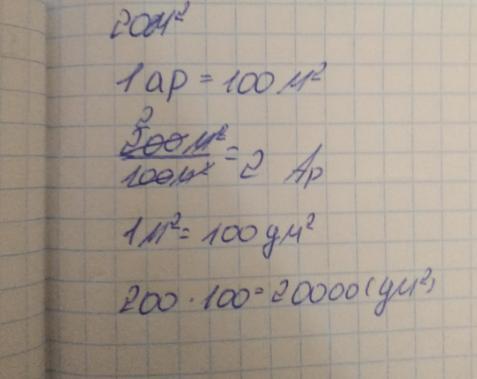 200м²
1 ар = 100 м²
2
200 м²
100м² = 2 Ар
1м² = 100 дм²
200 · 100 = 20000 (дм²)